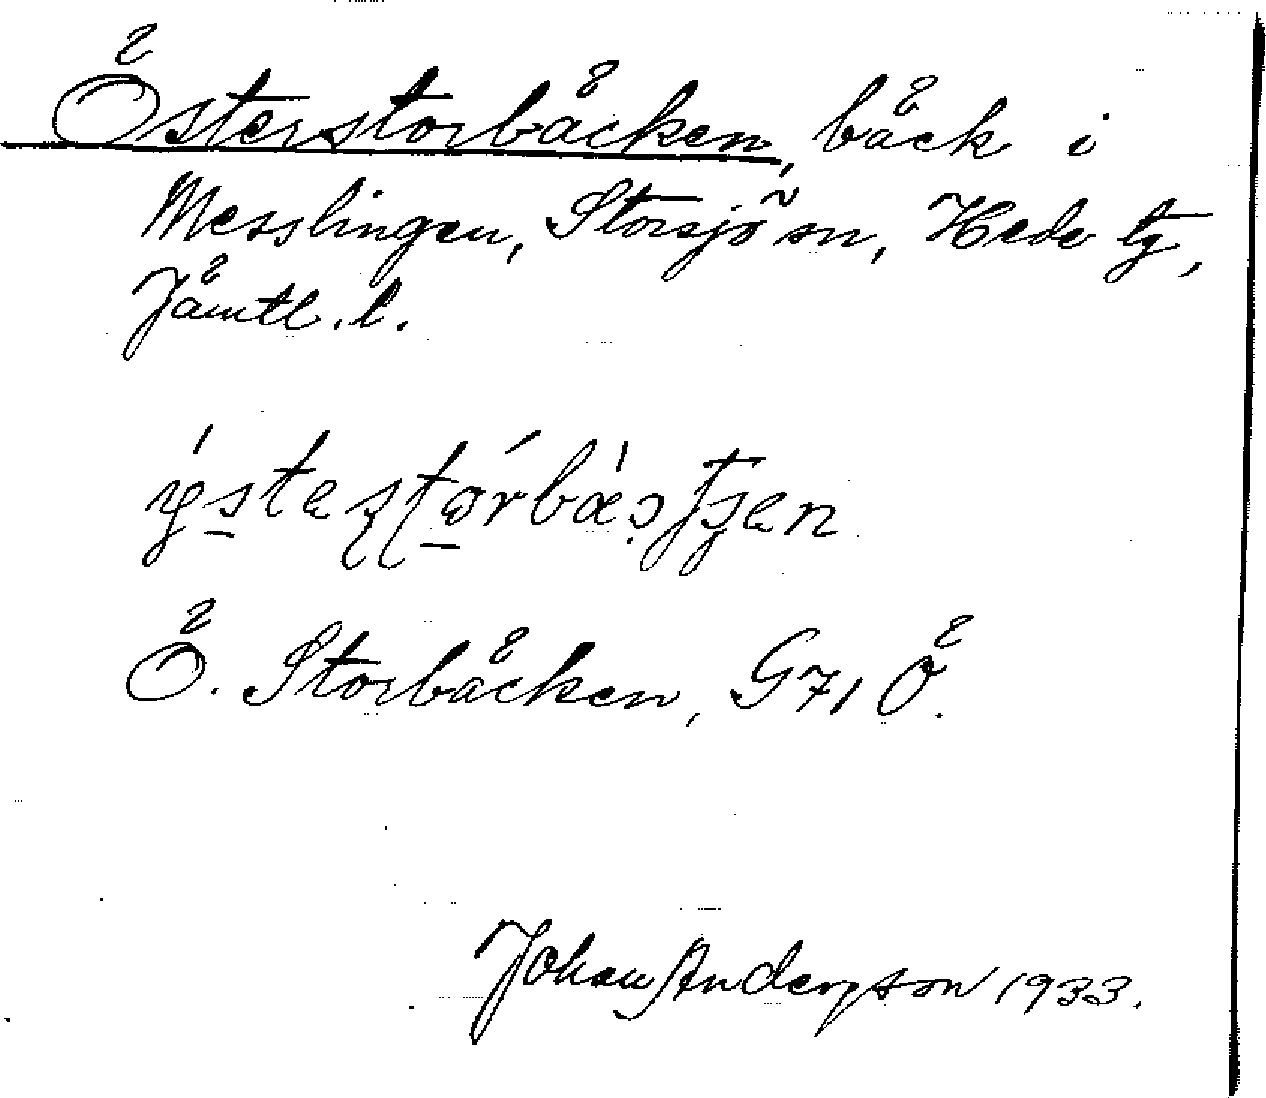 Österstorbäcken, bäck i
Messlingen, Storsjö sn, Hede tg,
Jämtl. l.
Ö. Storbäcken, G71 Ö.
Johan Anderson 1933.